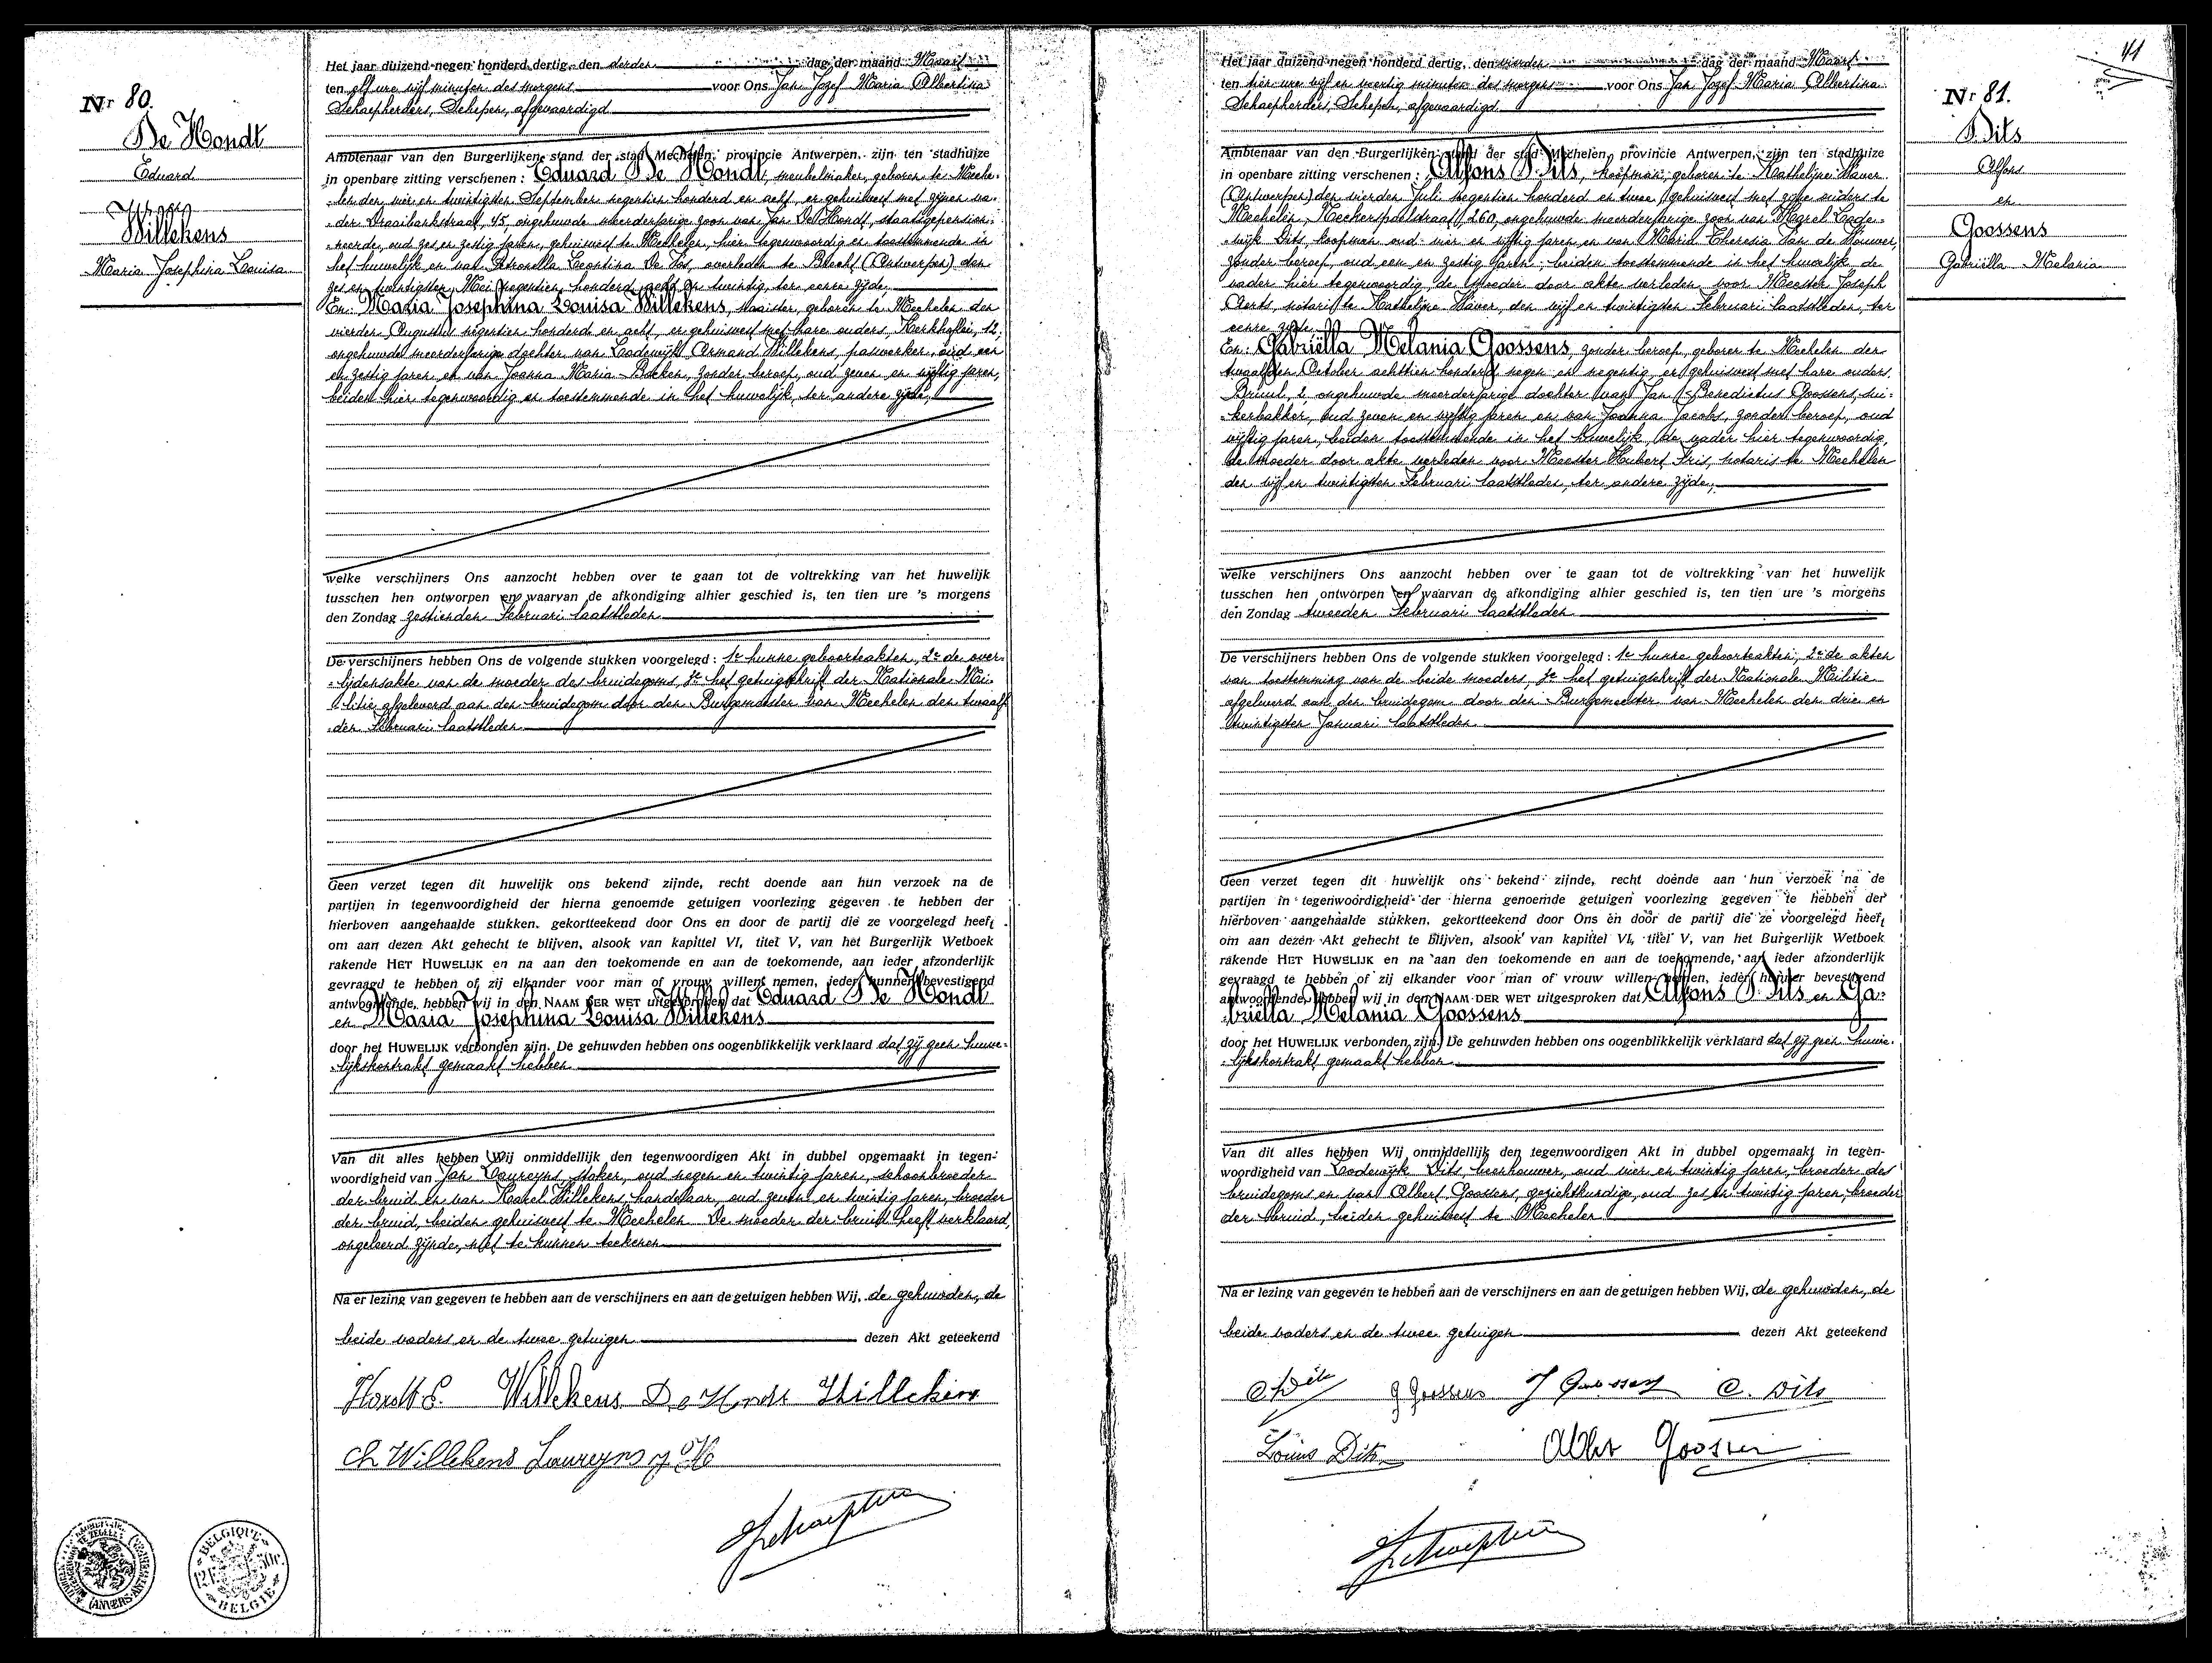 Nr 80.
De Hondt
Eduard
Willekens
Maria Josephina Louisa
Het jaar duizend negen honderd dertig, den derden dag der maand Maart
ten elf ure vijf minuten des morgens voor Ons Jan Jozef Maria Albertina
Schaepherders, Schepen, afgevaardigd
Ambtenaar van den Burgerlijken stand der stad Mechelen, provincie Antwerpen, zijn ten stadhuize
in openbare zitting verschenen: Eduard De Hondt, meubelmaker, geboren te Meche-
len den vier en twintigsten September negentien honderd en acht, er gehuisvest met zijnen va-
der Draaibankstraat, 45, ongehuwde meerderjarige zoon van Jan De Hondt, staatsgepension-
neerde, oud zes en zestig jaren, gehuisvest te Mechelen, hier tegenwoordig en toestemmende in
het huwelijk en van Petronella Leontina De Vos, overleden te Brecht (Antwerpen) den
zes en twintigsten Mei negentien honderd acht en twintig, ter eenre zijde
En: Maria Josephina Louisa Willekens, naaister, geboren te Mechelen den
vierden Augustus negentien honderd en acht, er gehuisvest met hare ouders, Kerkhoflei, 12,
ongehuwde meerderjarige dochter van Lodewijk Armand Willekens, paswerker, oud een
en zestig jaren en van Joanna Maria Backen, zonder beroep, oud zeven en vijftig jaren,
beiden hier tegenwoordig en toestemmende in het huwelijk, ter andere zijde,
welke verschijners Ons aanzocht hebben over te gaan tot de voltrekking van het huwelijk
tusschen hen ontworpen en waarvan de afkondiging alhier geschied is, ten tien ure 's morgens
den Zondag zestienden Februari laatstleden
De verschijners hebben Ons de volgende stukken voorgelegd: 1e hunne geboorteakten, 2e de over-
lijdensakte van de moeder des bruidegoms, 3e het getuigschrift der Nationale Mi-
litie afgeleverd aan den bruidegom door den Burgemeester van Mechelen den twaalf-
den Februari laatstleden
Geen verzet tegen dit huwelijk ons bekend zijnde, recht doende aan hun verzoek na de
partijen in tegenwoordigheid der hierna genoemde getuigen voorlezing gegeven te hebben der
hierboven aangehaalde stukken, gekortteekend door Ons en door de partij die ze voorgelegd heeft
om aan dezen Akt gehecht te blijven, alsook van kapittel VI, titel V, van het Burgerlijk Wetboek
rakende HET HUWELIJK en na aan den toekomende en aan de toekomende, aan ieder afzonderlijk
gevraagd te hebben of zij elkander voor man of vrouw willen nemen, ieder hunner bevestigend
antwoordende, hebben wij in den NAAM DER WET uitgesproken dat Eduard De Hondt
en Maria Josephina Louisa Willekens
door het HUWELIJK verbonden zijn. De gehuwden hebben ons oogenblikkelijk verklaard dat zij geen huwe-
lijkskontrakt gemaakt hebben
Van dit alles hebben Wij onmiddellijk den tegenwoordigen Akt in dubbel opgemaakt in tegen-
woordigheid van Jan Laureyns, stoker, oud negen en twintig jaren, schoonbroeder
der bruid en van Karel Willekens, handelaar, oud zeven en twintig jaren, broeder
der bruid, beiden gehuisvest te Mechelen. De moeder der bruid heeft verklaard,
ongeleerd zijnde, niet te kunnen teekenen
Na er lezing van gegeven te hebben aan de verschijners en aan de getuigen hebben Wij, de gehuwden, de
beide vaders en de twee getuigen dezen Akt geteekend
Hondt E. Willekens De Hondt Willekens
Ch Willekens Laureyns
BELGIQUE
BELGIE
41
Nr 81.
Dils
Alfons
en
Goossens
Gabriëlla Melania
Het jaar duizend negen honderd dertig, den vierden dag der maand Maart
ten tien ure vijf en veertig minuten des morgens voor Ons Jan Jozef Maria Albertina
Schaepherders, Schepen, afgevaardigd
Ambtenaar van den Burgerlijken stand der stad Mechelen, provincie Antwerpen, zijn ten stadhuize
in openbare zitting verschenen: Alfons Dils, koopman, geboren te Kathelijne Waver
(Antwerpen) den vierden Juli negentien honderd en twee, gehuisvest met zijne ouders te
Mechelen, Neckerspoelstraat, 260, ongehuwde meerderjarige zoon van Karel Lode-
wijk Dils, koopman oud vier en vijftig jaren en van Maria Theresia Van de Wouwer,
zonder beroep, oud een en zestig jaren, beiden toestemmende in het huwelijk, de
vader hier tegenwoordig, de moeder door akte verleden voor Meester Joseph
Aerts notaris te Kathelijne Waver, den vijf en twintigsten Februari laatstleden, ter
eenre zijde
En: Gabriëlla Melania Goossens, zonder beroep, geboren te Mechelen den
twaalfden October achttien honderd negen en negentig, er gehuisvest met hare ouders,
Bruul, 2, ongehuwde meerderjarige dochter van Jan Benedictus Goossens, sui-
kerbakker, oud zeven en vijftig jaren en van Joanna Jacobs, zonder beroep, oud
vijftig jaren, beiden toestemmende in het huwelijk, de vader hier tegenwoordig,
de moeder door akte verleden voor Meester Hubert Fris, notaris te Mechelen
den vijf en twintigsten Februari laatstleden, ter andere zijde,
welke verschijners Ons aanzocht hebben over te gaan tot de voltrekking van het huwelijk
tusschen hen ontworpen en waarvan de afkondiging alhier geschied is, ten tien ure 's morgens
den Zondag tweeden Februari laatstleden
De verschijners hebben Ons de volgende stukken voorgelegd: 1e hunne geboorteakten, 2e de akten
van toestemming van de beide moeders, 3e het getuigschrift der Nationale Militie
afgeleverd aan den bruidegom door den Burgemeester van Mechelen den drie en
twintigsten Januari laatstleden
Geen verzet tegen dit huwelijk ons bekend zijnde, recht doende aan hun verzoek na de
partijen in tegenwoordigheid der hierna genoemde getuigen voorlezing gegeven te hebben der
hierboven aangehaalde stukken, gekortteekend door Ons en door de partij die ze voorgelegd heeft
om aan dezen Akt gehecht te blijven, alsook van kapittel VI, titel V, van het Burgerlijk Wetboek
rakende HET HUWELIJK en na aan den toekomende en aan de toekomende, aan ieder afzonderlijk
gevraagd te hebben of zij elkander voor man of vrouw willen nemen, ieder hunner bevestigend
antwoordende, hebben wij in den NAAM DER WET uitgesproken dat Alfons Dils en Ga-
briëlla Melania Goossens
door het HUWELIJK verbonden zijn. De gehuwden hebben ons oogenblikkelijk verklaard dat zij geen huwe-
lijkskontrakt gemaakt hebben
Van dit alles hebben Wij onmiddellijk den tegenwoordigen Akt in dubbel opgemaakt in tegen-
woordigheid van Lodewijk Dils, beenhouwer, oud vier en twintig jaren, broeder des
bruidegoms en van Albert Goossens, gezichtkundige, oud zes en twintig jaren, broeder
der bruid, beiden gehuisvest te Mechelen
Na er lezing van gegeven te hebben aan de verschijners en aan de getuigen hebben Wij, de gehuwden, de
beide vaders en de twee getuigen dezen Akt geteekend
A Dils G Goossens J Goossens C. Dils
Louis Dils Albert Goossens